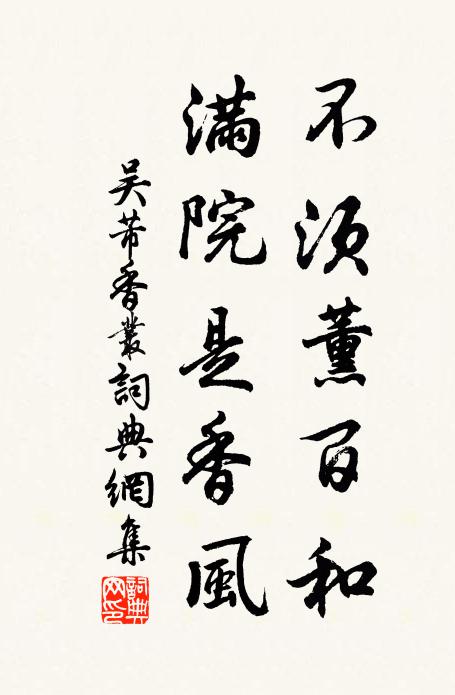 不須薰百和
滿院是香風
吳芾香叢詞典網集
詞典網印